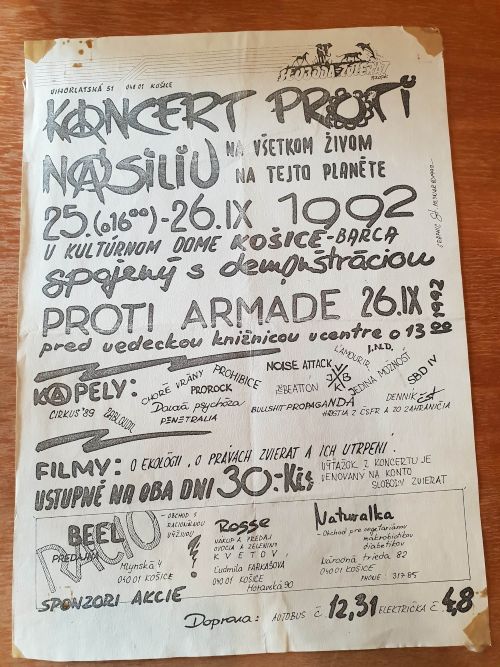 SLOBODA ZVIERAT
VIHORLATSKÁ 51 040 01 KOŠICE
KONCERT PROTI
NÁSILIU NA VŠETKOM ŽIVOM
NA TEJTO PLANÉTE
25. (o 16 00) - 26. IX 1992
U KULTÚRNOM DOME KOŠICE - BARCA
spojený s demonštráciou
PROTI ARMADE 26. IX 1992
pred vedeckou knižnicou v centre o 13 00
KAPELY:
CIRKUS '89
CHORÉ VRANY
PROHIBICE
PROROCK
Davová psychóza
PENETRALIA
NOISE ATTACK
LAMOURIR
I.N.D.
BEATTON
JEDINÁ MOŽNOSŤ
SBD IV
BULLSHIT PROPAGANDA
DENNIK
HOSTIA Z ČSFR A ZO ZAHRANIČIA
FILMY: O EKOLÓGII, O PRÁVACH ZVIERAT A ICH UTRPENÍ
VÝŤAŽOK Z KONCERTU JE
VENOVANÝ NA KONTO
SLOBODY ZVIERAT
VSTUPNÉ NA OBA DNI 30.- Kčs
RACIO
BEEL
PREDAJŇA
- OBCHOD S
RACIONÁLNOU
VÝŽIVOU
Mlynská 4
040 01 KOŠICE
Rosse
NÁKUP A PREDAJ
OVOCIA A ZELENINY
KVETOV
Ľudmila FARKAŠOVÁ
040 01 KOŠICE
Naturalka
- Obchod pre vegetariánov
makrobiotikov
diabetikov
trieda 82
040 01 KOŠICE
PHONE : 317-85
SPONZORI AKCIE
Doprava: AUTOBUS Č. 12, 31 ELEKTRIČKA Č 4, 8